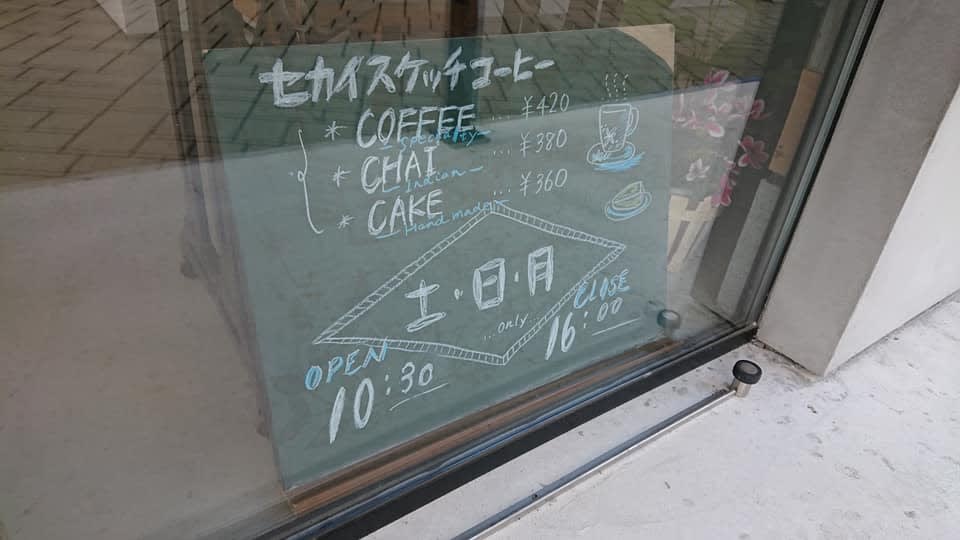 セカイスケッチコーヒー
* COFFEE ... ¥420
- Specialty -
* CHAI ... ¥380
- Indian -
* CAKE ... ¥360
- Hand made -
土・日・月
...only...
OPEN
10:30
CLOSE
16:00